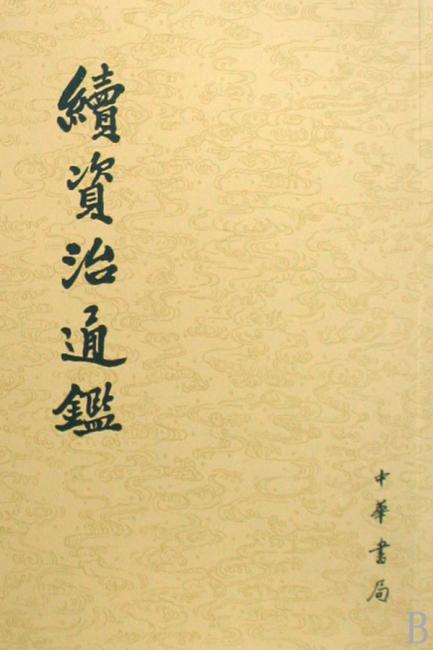 續資治通鑑
中華書局
B